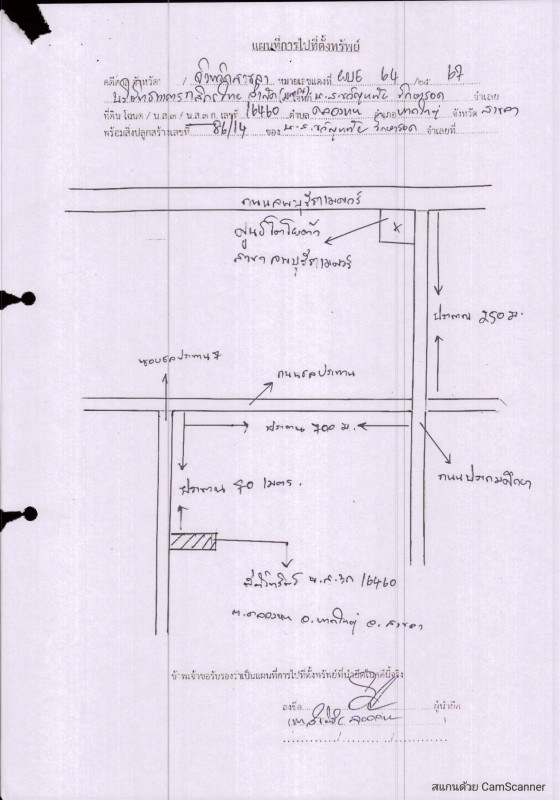 แผนที่การไปที่ตั้งทรัพย์
ศาลจังหวัด / จังหวัดสงขลา หมายเลขแดงที่ ผบE 64 /๒๕ 67
ธนาคารกสิกรไทย จำกัด (มหาชน) จำเลย
ที่ดิน โฉนด / น.ส.๓ / น.ส.๓ ก. เลขที่ 16460 ตำบล คลองแห อำเภอ หาดใหญ่ จังหวัด สงขลา
พร้อมสิ่งปลูกสร้างเลขที่ 86/14 ของ น.ส. จำเลยที่
ถนนลพบุรีราเมศวร์
ศูนย์โตโยต้า
สาขา ลพบุรีราเมศวร์
X
ประมาณ 250 ม.
ซอยชลประทาน 7
ถนนชลประทาน
ประมาณ 700 ม.
ประมาณ 40 เมตร.
ถนนประถมศึกษา
ที่ตั้งทรัพย์ น.ส.3ก 16460
ต.คลองแห อ.หาดใหญ่ จ.สงขลา
ข้าพเจ้าขอรับรองว่าเป็นแผนที่การไปที่ตั้งทรัพย์ที่นำยึดในคดีนี้จริง
ลงชื่อ ผู้นำยึด
สแกนด้วย CamScanner